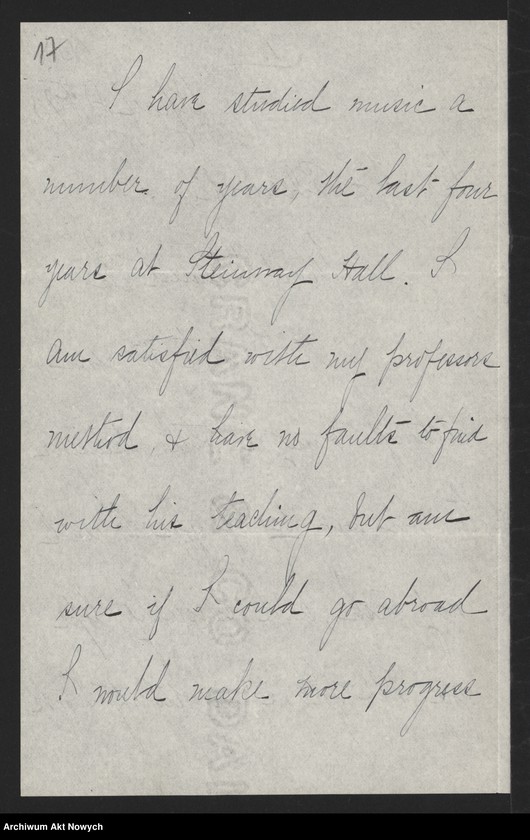 17
I have studied music a
number of years, the last four
years at Steinway Hall. I
am satisfied with my professors
method, & have no faults to find
with his teaching, but am
sure if I could go abroad
I would make more progress
Archiwum Akt Nowych